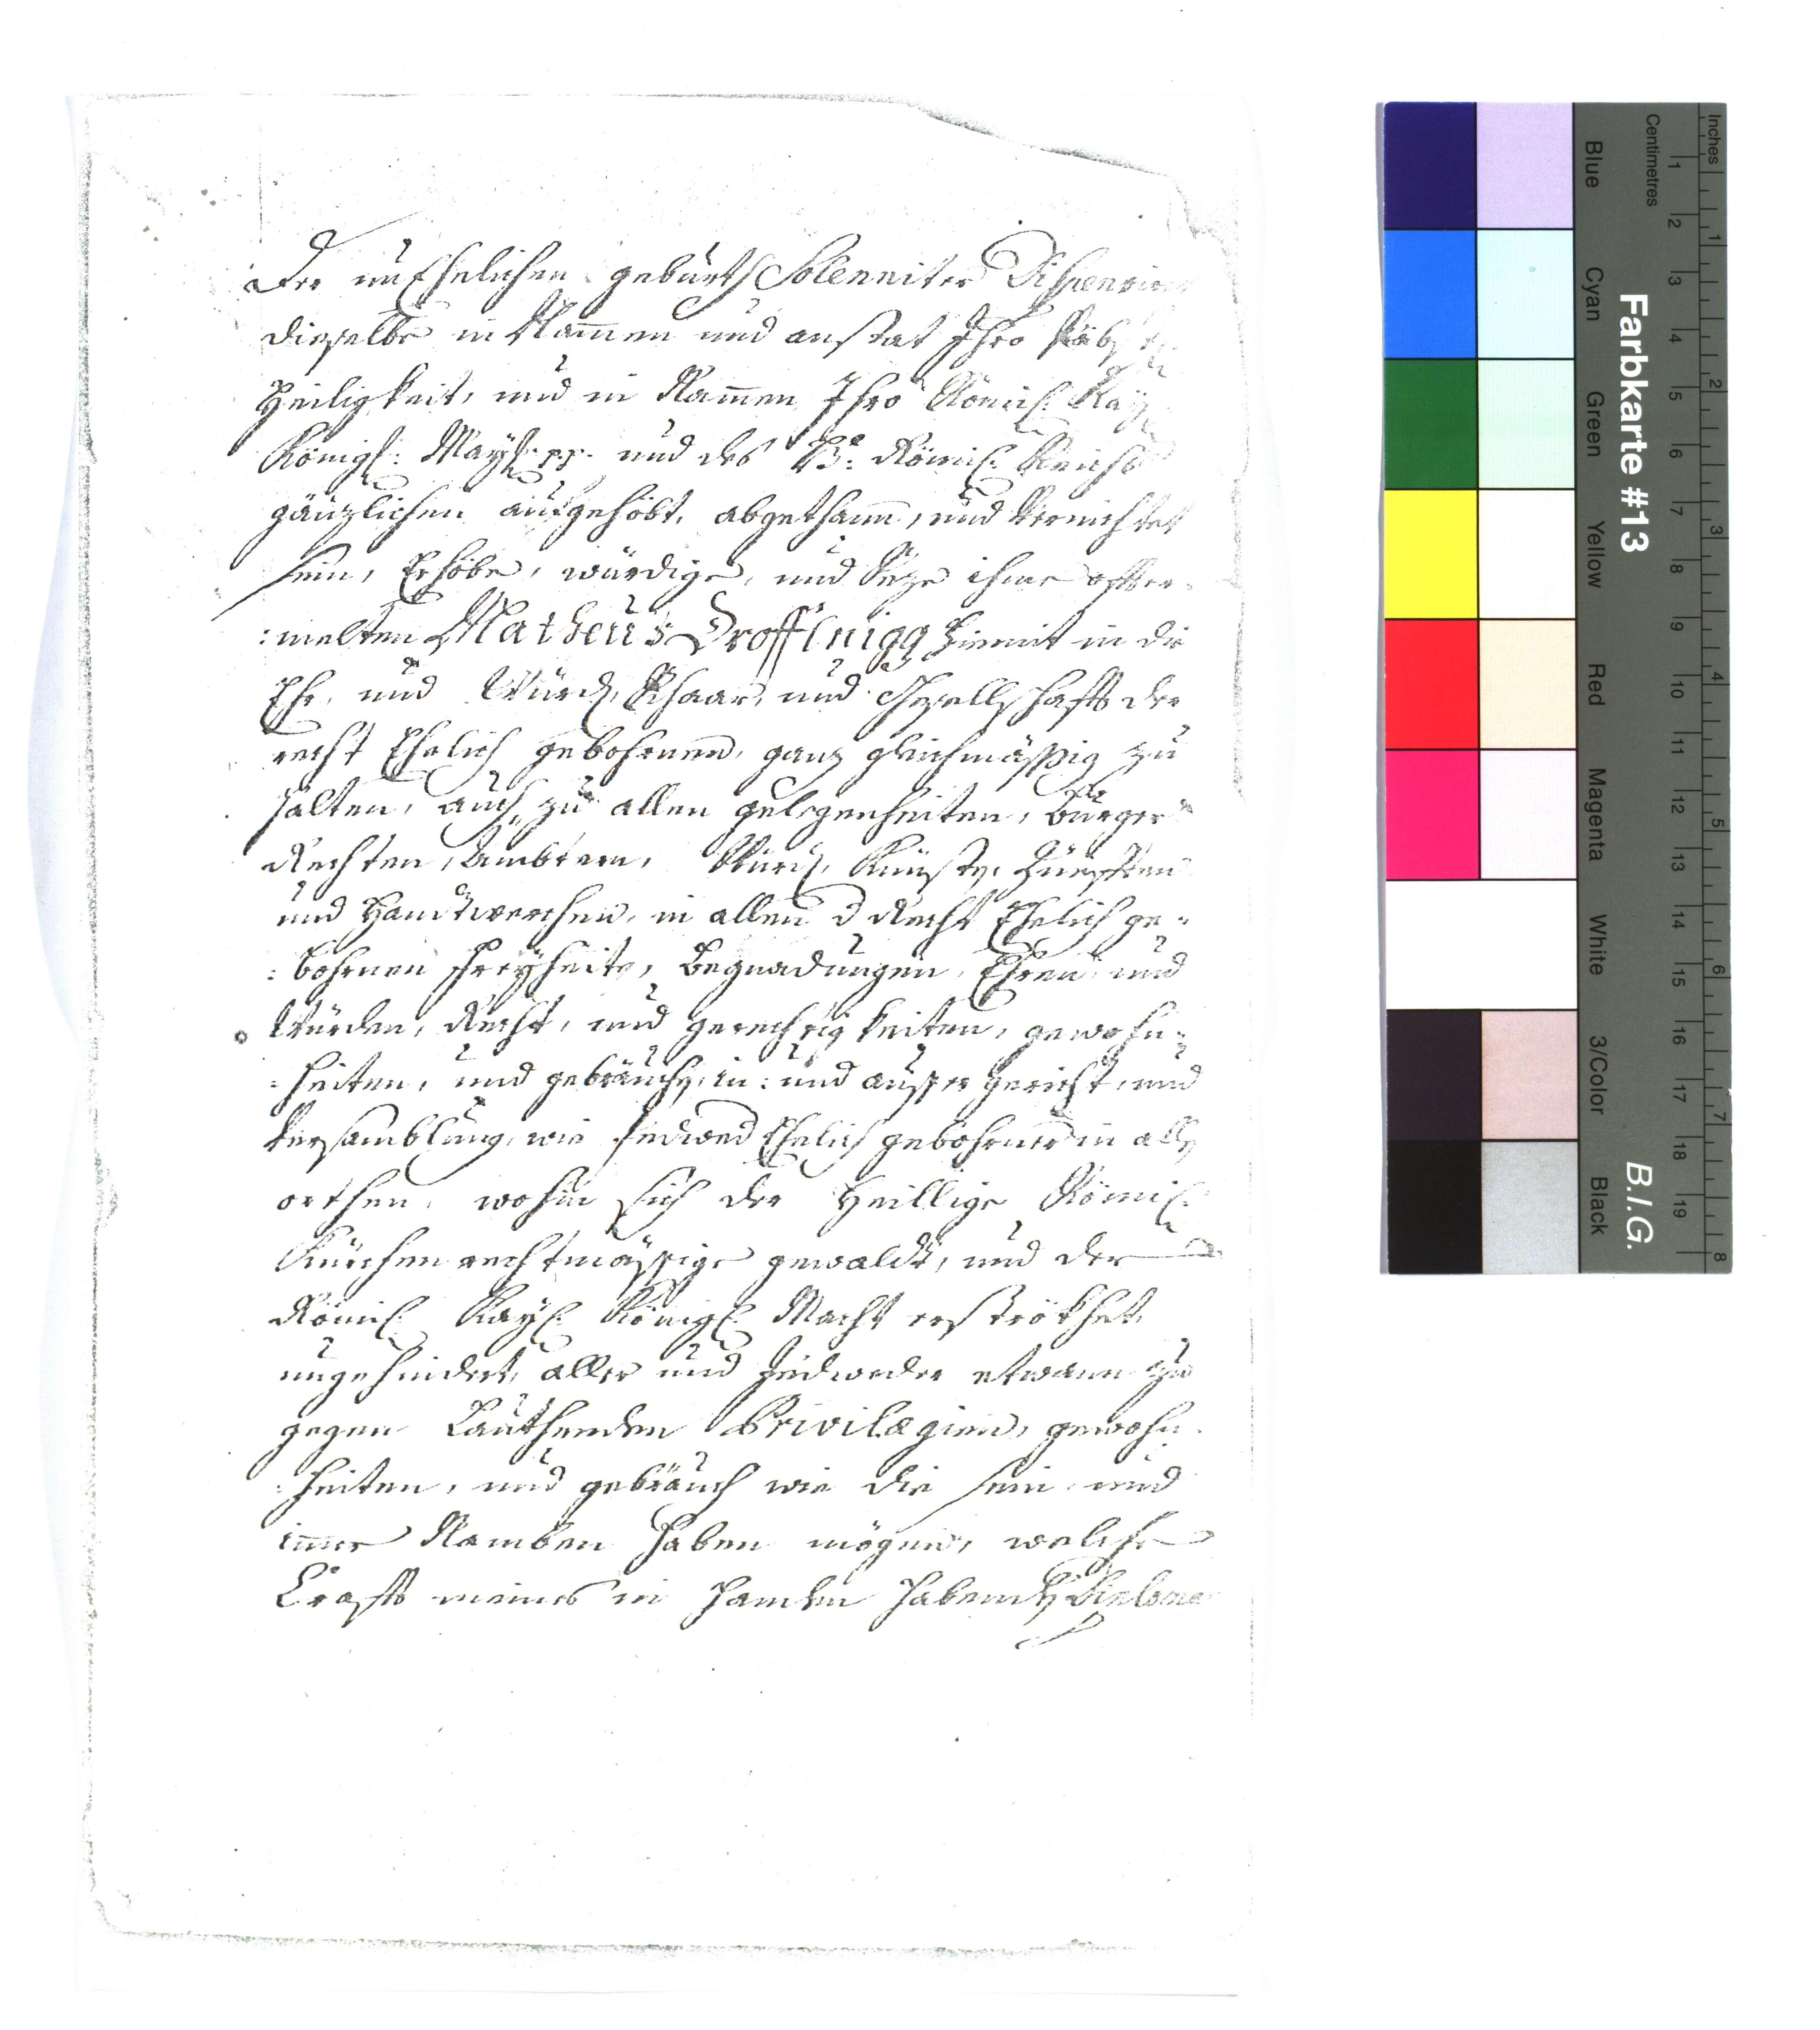 Der un Ehelichen geburth Solenniter Dispensirt
dieselbe in Nam̄en und anstat Ihro Päbstl:
Heiligkeit, und in Nam̄en Ihro Römis: Kay:
Königl: Mayst: pp. und des H: Römis: Reichs
gänzlichen aufgehöbt, abgethann, und Vernichtet
sein, Erhöbe, würdige, und Seze ihme offter-
:melten Matheus Drofflnigg hiemit in die
Ehr, und Würd, Schaar, und Gesellschafft der
recht Ehelich gebohrnen, ganz gleichmässig zu
halten, auch zu allen gelegenheiten, burger
Rechten, Ambtern, Würd, Künsten, Zünfften
und Handtwerchen, in allen d Recht Ehelich ge-
:bohrnen Freyheiten, Begnadungen, Ehren und
Würden, Recht, und gerechtigkeiten, gewohn-
:heiten, und gebräuchen, in: und ausser gericht, und
Versamblung, wie jedwed Ehelich gebohrner in allen
orthen, wohin sich der Heillige Römis:
Kürchen rechtmässige gewaldt, und der
Römis: Kays: Königl: Macht erströkhet,
ungehindert, aller und Jedweder etwann zu
gegen Lauthenden Privilægien, gewohn-
:heiten, und gebräuch wie die sein und
im̄er Namben haben mögen, welche
Crafft meines in handen habenden Diploma